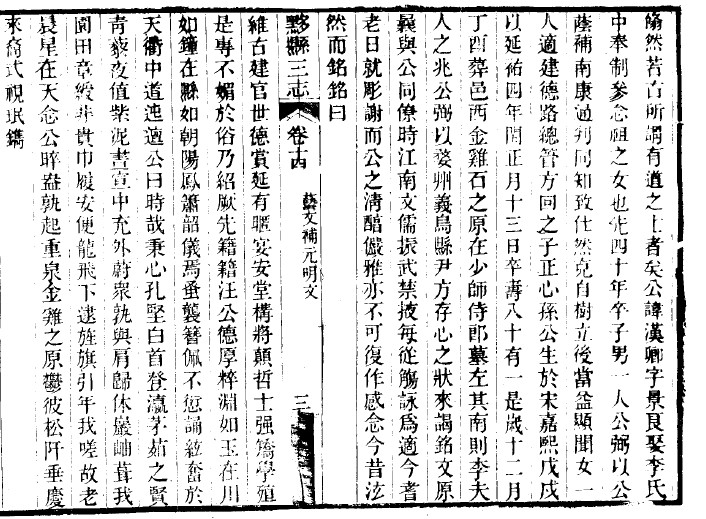 翛然若古所謂有道之士者矣公諱漢卿字景良娶李氏
中奉制參念祖之女也先四十年卒子男一人公弼以公
蔭補南康通判同知致仕然克自樹立後當益顯聞女一
人適建德路總管方回之子正心孫公生於宋嘉熙戊戌
以延祐四年閏正月十三日卒壽八十有一是歲十二月
丁酉葬邑西金雞石之原在少師侍郎墓左其南則李夫
人之兆公弼以婺州義烏縣尹方存心之狀來謁銘文原
義與公同僚時江南文儒振武禁掖每從觴詠爲適今耆
老日就彫謝而公之清醞儼雅亦不可復作感念今昔泫
然而銘銘曰
黟縣三志
卷十四
藝文補元明文
三
維古建官世德賞延有暱宴安堂構將顛哲士强矯學殖
是專不媚於俗乃紹厥先籍籍汪公德厚粹淵如玉在川
如鐘在縣如朝陽鳳簫韶儀焉蚤襲簪佩不愆誦絃奮於
天衢中道迍邅公曰時哉秉心孔堅白首登瀛茅茹之賢
青藜夜值紫泥晝宣中充外蔚衆孰與肩歸休巖岫葺我
園田章綬非貴巾履安便龍飛下逮旌旗引年我嗟故老
晨星在天念公睟盎孰起重泉金雞之原鬱彼松阡垂慶
來裔式視珉鐫